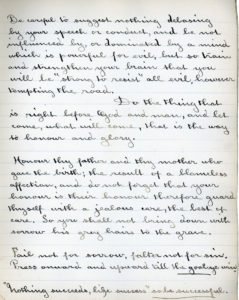 Be careful to suggest nothing debasing
by your speech or conduct, and be not
influenced by or dominated by a mind
which is powerful for evil, but so train
and strengthen your brain that you
will be "strong to resist" all evil, however
tempting the road.
Do the thing that
is right before God and man, and let
come, what will come, that is the way
to honour and glory.
Honour thy father and thy mother who
gave thee birth, the result of a blameless
affection, and do not forget that your
honour is their honour therefore, guard
thyself with a jealous care, the best of
care. So you shall not bring down with
sorrow his grey hairs to the grave.
Fail not for sorrow, falter not for sin,
Press onward and upward till the goal ye win
"Nothing succeeds, like success" so be successful.